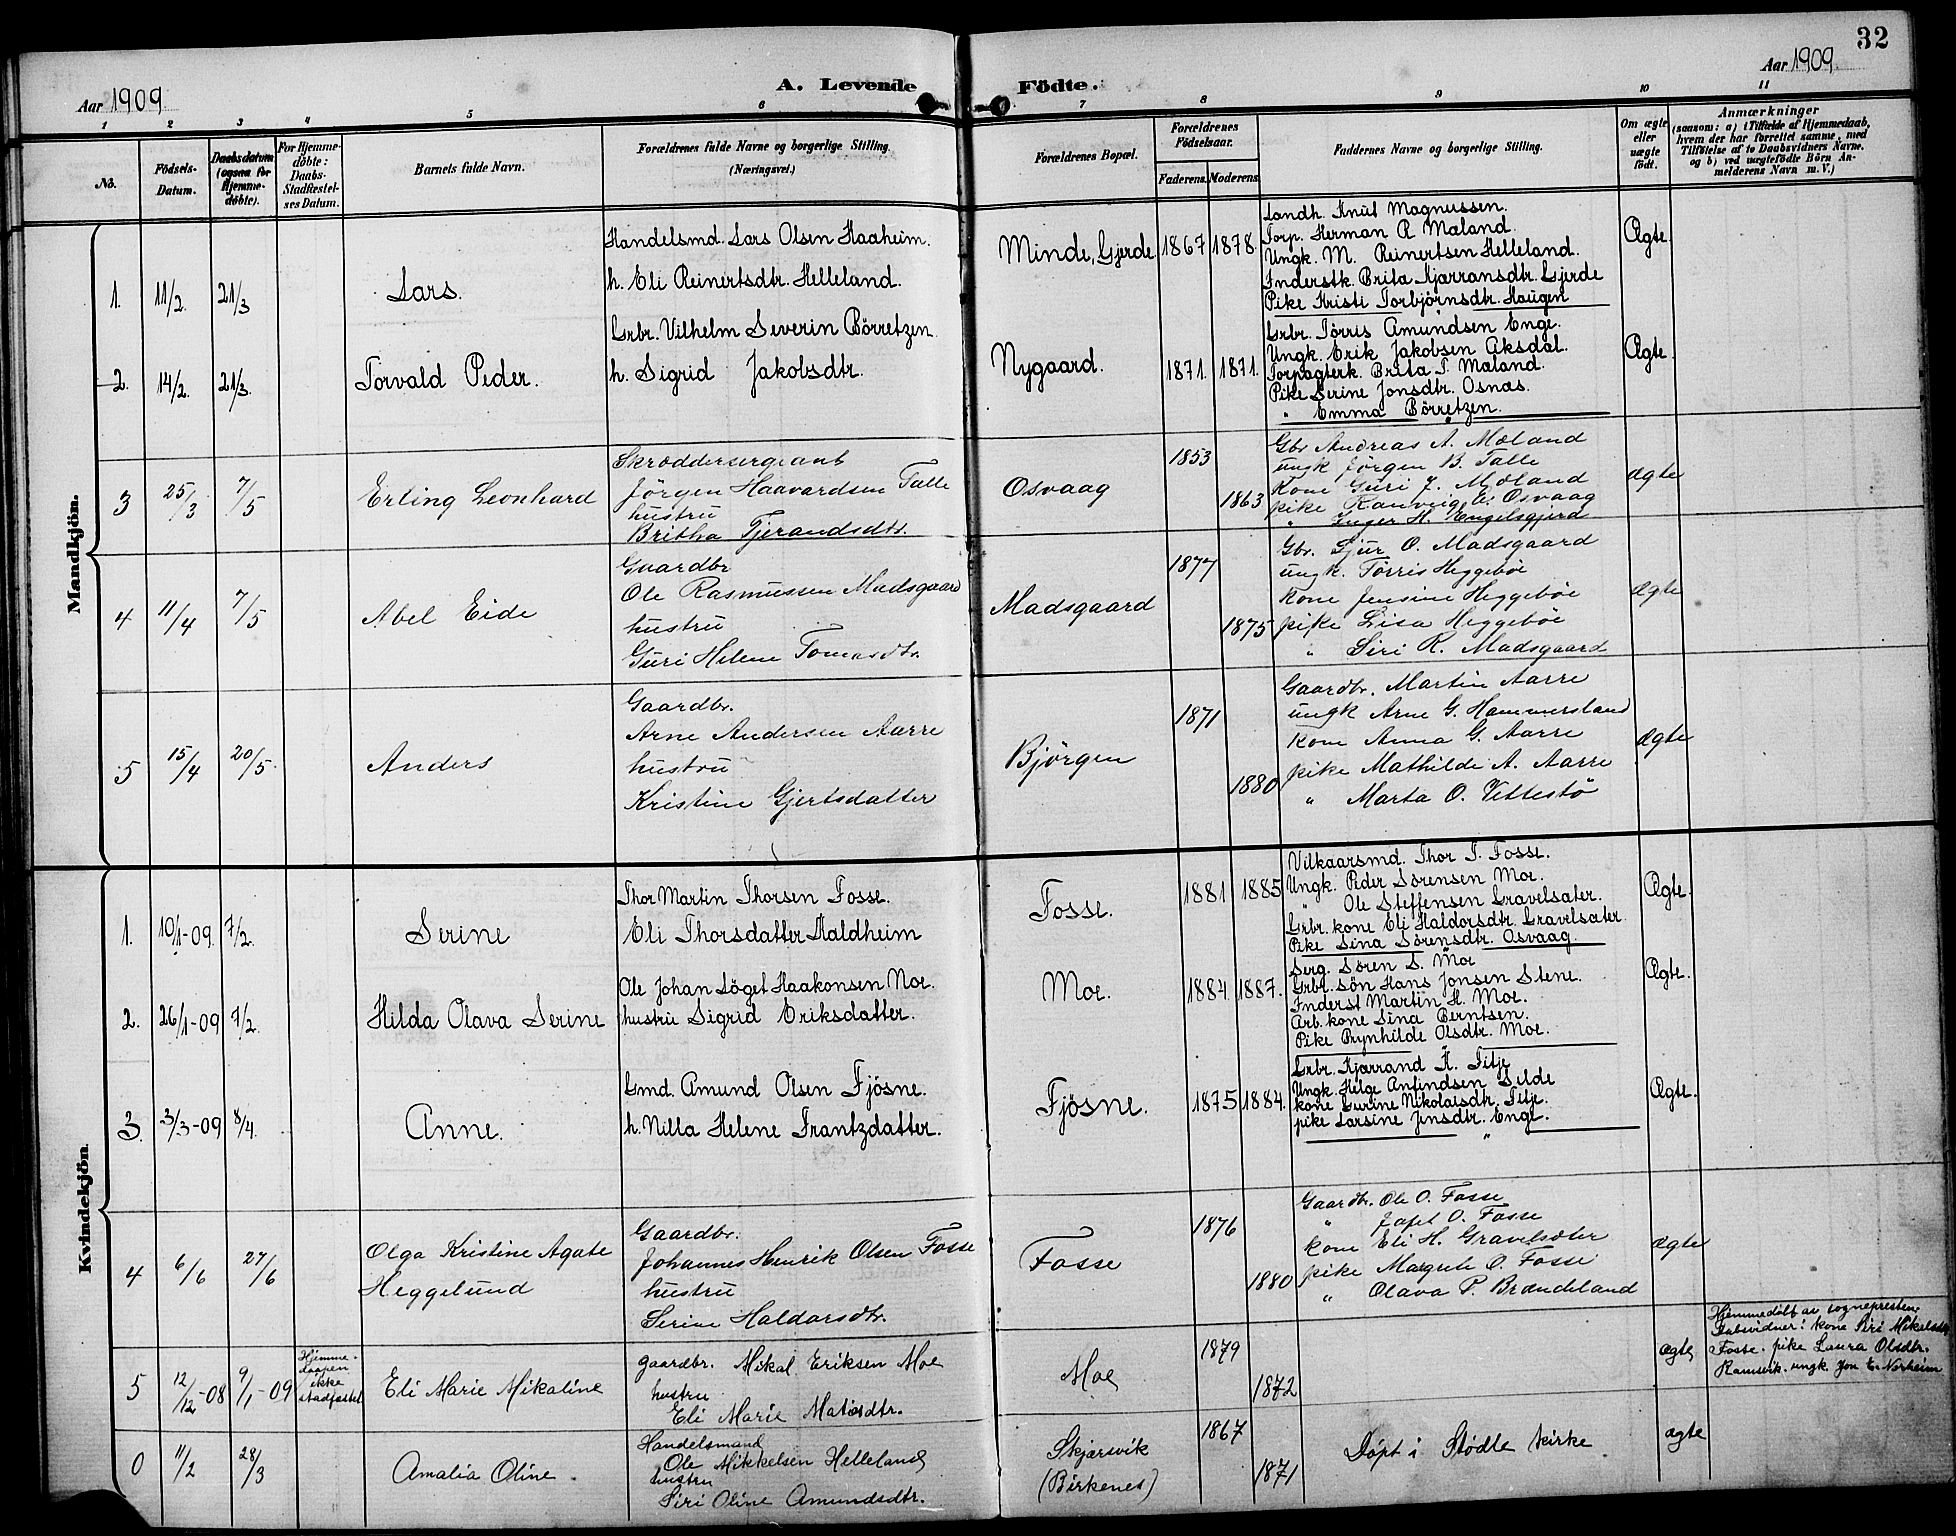 32
Aar 1909
A. Levende Födte.
Aar 1909
1 2 3 4 5 6 7 8 9 10 11
No.
Födsels-Datum.
Daabsdatum (ogsaa for Hjemme-döbte).
For Hjemme-döbte: Daabs-Stadfæstel-ses Datum.
Barnets fulde Navn.
Forældrenes fulde Navne og borgerlige Stilling.
(Næringsvei.)
Forældrenes Bopæl.
Forældrenes Födselsaar.
Faderens. Moderens.
Faddernes Navne og borgerlige Stilling.
Om ægte eller uægte födt.
Anmærkninger
(saasom: a) i Tilfælde af Hjemmedaab,
hvem der har forrettet samme, med
Tilföielse af to Daabsvidners Navne,
og b) ved uægtefödte Börn An-
melderens Navn m. V.)
Mandkjön.
1. 11/2. 21/3 Lars.
Handelsmd. Lars Olsen Haaheim.
h. Eli Reinertsdtr. Helleland.
Minde, Gjerde 1867 1878.
Landh. Knut Magnussen.
Torp. Herman R Mæland.
Ungk. M. Reinertsen Helleland.
Inderstk. Brita Kjærransdtr. Gjerde
Pike Kristi Torbjörnsdtr. Haugen
Ægte.
2. 14/2. 21/3. Torvald Peder.
Grbr. Vilhelm Severin Börretzen.
h. Sigrid Jakobsdtr.
Nygaard. 1871. 1871.
Grbr. Törris Amundsen Enge.
Ungk. Erik Jakobsen Aksdal.
Torpagterk. Brita T. Mæland.
Pike Serine Jonsdtr. Osnæs.
" Emma Börretzen.
Ægte.
3 25/3 7/5 Erling Leonhard
Skræddersergeant
Jörgen Haavardsen Talle
hustru
Britha Tjerandsdtr.
Osvaag 1853 1863
Gbr Andreas A. Mæland
ungk Jörgen B. Talle
Kone Guri J. Mæland
pike Ranveig E. Osvaag
" Inger H. Engelsgjerd
ægte
4 11/4 7/5 Abel Eide
Gaardbr
Ole Rasmussen Madsgaard
hustru
Guri Helene Tomasdtr.
Madsgaard 1877 1875
Gbr. Sjur O. Madsgaard
ungk. Törris Heggeböe
kone Jensine Heggeböe
pike Lisa Heggeböe
" Siri R. Madsgaard
Ægte
5 15/4 20/5. Anders
Gaardbr.
Arne Andersen Aarre
hustru
Kristine Gjertsdatter
Bjørgen 1871 1880
Gaardbr. Martin Aarre
ungk Arne G. Hammersland
Kone Anna G. Aarre
pike Mathilde A. Aarre
" Marta O. Vettestö
Ægte
Kvindekjön
1. 10/1-09. 7/2. Serine
Thor Martin Thorsen Fosse.
Eli Thorsdatter Haldheim
Fosse. 1881 1885
Vilkaarsmd. Thor T. Fosse.
Ungk. Peder Sörensen Moe.
" Ole Steffensen Gravelsæter.
Grbr. kone Eli Haldorsdtr. Gravelsæter.
Pike Sina Sörensdtr. Osvaag.
Ægte.
2. 26/1-09 7/2. Hilda Olava Serine
Ole Johan Löget Haakonsen Moe.
hustru Sigrid Eriksdatter.
Moe. 1884 1887.
Serg. Sören S. Moe
Grbr. sön Hans Jonsen Stene.
Inderst Martin H. Moe.
Arb. kone Sina Berntsen.
Pike Brynhilde Olsdtr. Moe.
Ægte.
3. 3/3-09 8/4. Anne.
Gmd. Amund Olsen Fjösne.
h. Nilla Helene Frantzdatter.
Fjösne. 1875 1884.
Grbr. Kjærrand K. Titje
Ungk. Helge Anfindsen Silde
kone Gurine Nikolaisdtr. Titje.
pike Larsine Jensdtr. Enge.
Ægte.
4 6/6 27/6 Olga Kristine Agate
Heggelund
Gaardbr.
Johannes Henrik Olsen Fosse
hustru
Serine Haldorsdtr.
Fosse 1876 1880
Gaardbr. Ole O. Fosse
" Jafet O. Fosse
kone Eli H. Gravelsæter
pike Margrete O. Fosse
" Olava P. Brændeland
ægte
5 12/12-08 9/1-09
Hjemme-
daapen
ikke
stadfæstet
Eli Marie Mikaline
gaardbr. Mikal Eriksen Moe
hustru
Eli Marie Matiasdtr.
Moe 1879 1872
ægte
Hjemmedøbt av sognepresten.
Dabsvidner: kone Siri Mikelsdtr
Fosse. pike Laura Olsdtr.
Ramsvik. ungk Jon E. Norheim
0 11/2 28/3 Amalia Oline.
Handelsmand
Ole Mikkelsen Helleland
hustru
Siri Oline Amundsdtr.
Skjersvik
(Birkenes)
1867 1871
Döpt i Stödle kirke
ægte